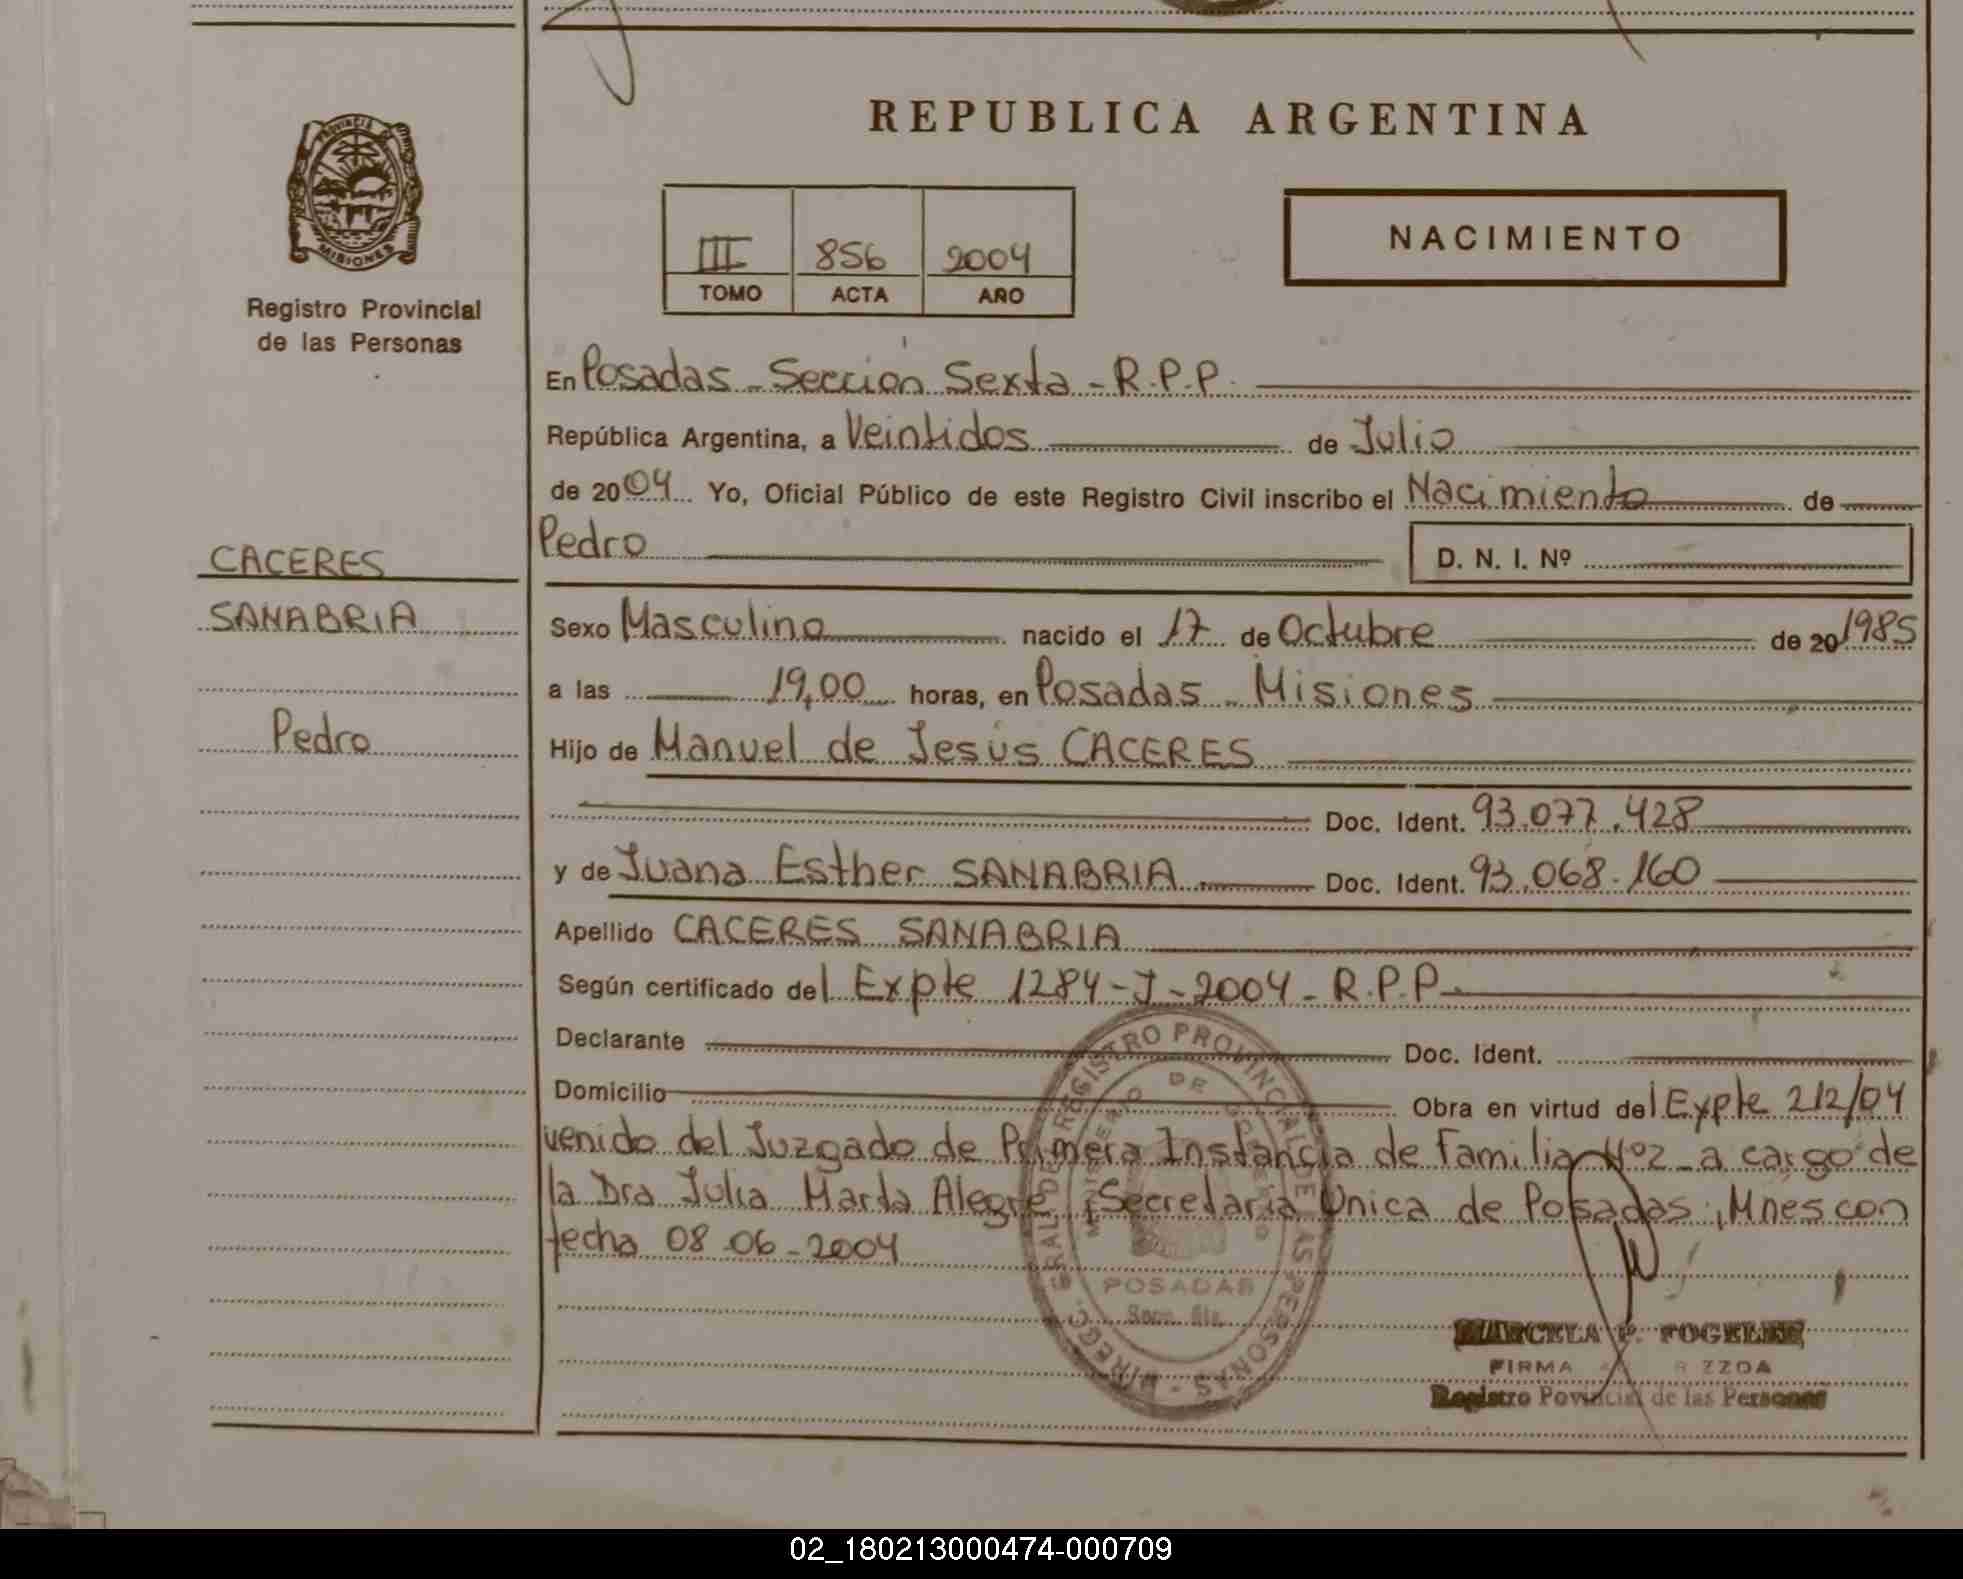 REPUBLICA ARGENTINA
PROVINCIA DE
MISIONES
Registro Provincial
de las Personas
III 856 2004
TOMO ACTA AÑO
NACIMIENTO
En Posadas - Sección Sexta - R.P.P.
República Argentina, a Veintidos de Julio
de 2004 Yo, Oficial Público de este Registro Civil inscribo el Nacimiento de
Pedro D. N. I. Nº
CACERES
SANABRIA
Pedro
Sexo Masculino nacido el 17 de Octubre de 20 1985
a las 19,00 horas, en Posadas - Misiones
Hijo de Manuel de Jesús CACERES
Doc. Ident. 93.077.428
y de Juana Esther SANABRIA Doc. Ident. 93.068.160
Apellido CACERES SANABRIA
Según certificado del Expte 1284-J-2004 - R.P.P.
Declarante Doc. Ident.
Domicilio Obra en virtud del Expte 212/04
venido del Juzgado de Primera Instancia de Familia Nº2 a cargo de
la Dra Julia Marta Alegre, Secretaria Unica de Posadas, Mnes con
fecha 08-06-2004
REGISTRO PROVINCIAL DE LAS PERSONAS
MINISTERIO DE GOBIERNO
POSADAS
MARCELA P.
FIRMA
Registro Povincial de las Personas
02_180213000474-000709